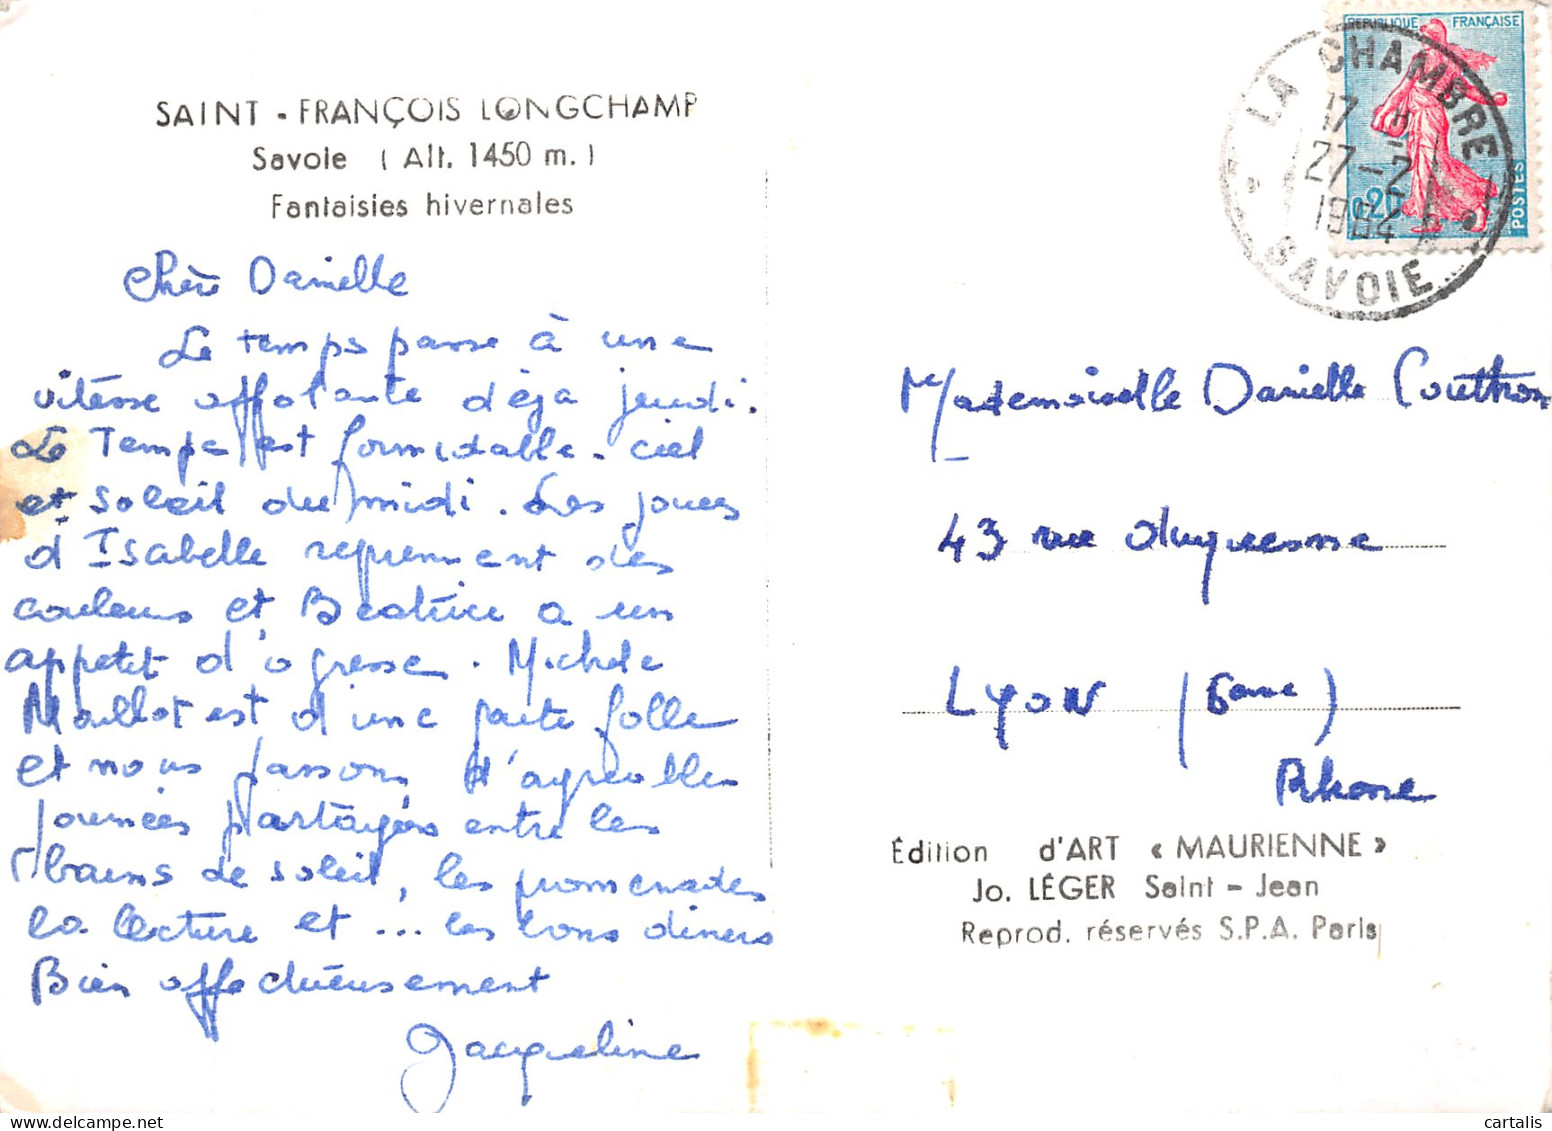 SAINT - FRANÇOIS LONGCHAMP
Savoie ( Alt. 1450 m. )
Fantaisies hivernales
Chère Danielle
Le temps passe à une
vitesse affolante déja jeudi.
Le Temps est formidable. ciel
et soleil du midi. Les joues
d'Isabelle reprennent des
couleurs et Béatrice a un
appetit d'ogresse. Michele
Maillot est d'une patte folle
et nous passons d'agreables
journées partagées entre les
bains de soleil, les promenades
la lecture et ... les bons diners
Bien affectueusement
Jacqueline
REPUBLIQUE FRANÇAISE
0,20
POSTES
LA CHAMBRE
17 H
27-2
1964
SAVOIE
Mademoiselle Danielle
43 rue duquesne
LYON (6ème)
Rhone
Édition d'ART « MAURIENNE »
Jo. LÉGER Saint - Jean
Reprod. réservés S.P.A. Paris
cartalis